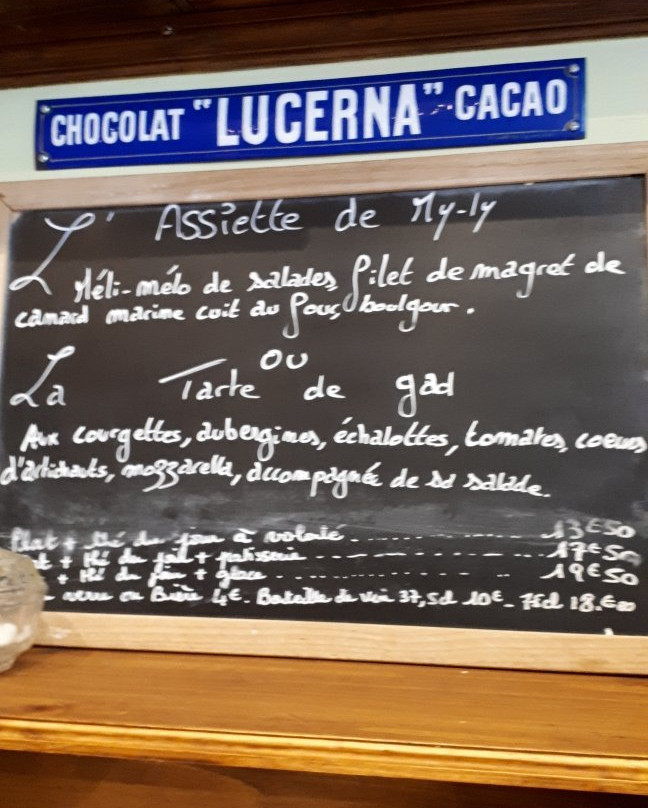 CHOCOLAT "LUCERNA" CACAO
L' Assiette de My-ly
Méli-mélo de salades, filet de magret de
canard marine cuit au four, boulgour.
OU
La Tarte de gad
Aux courgettes, aubergines, échalottes, tomates, coeurs
d'artichauts, mozzarella, accompagnée de sa salade.
Plat + thé du jour à volonté 13€50
+ thé du jour + patisserie 17€50
+ thé du jour + glace 19€50
verre ou Bière 4€. Bouteille de vin 37,5cl 10€ - 75cl 18.€00